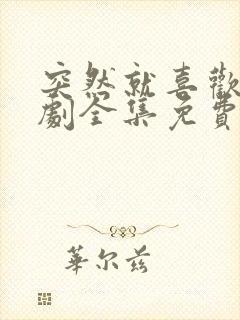 突然就喜歡
劇全集免費
華尔兹